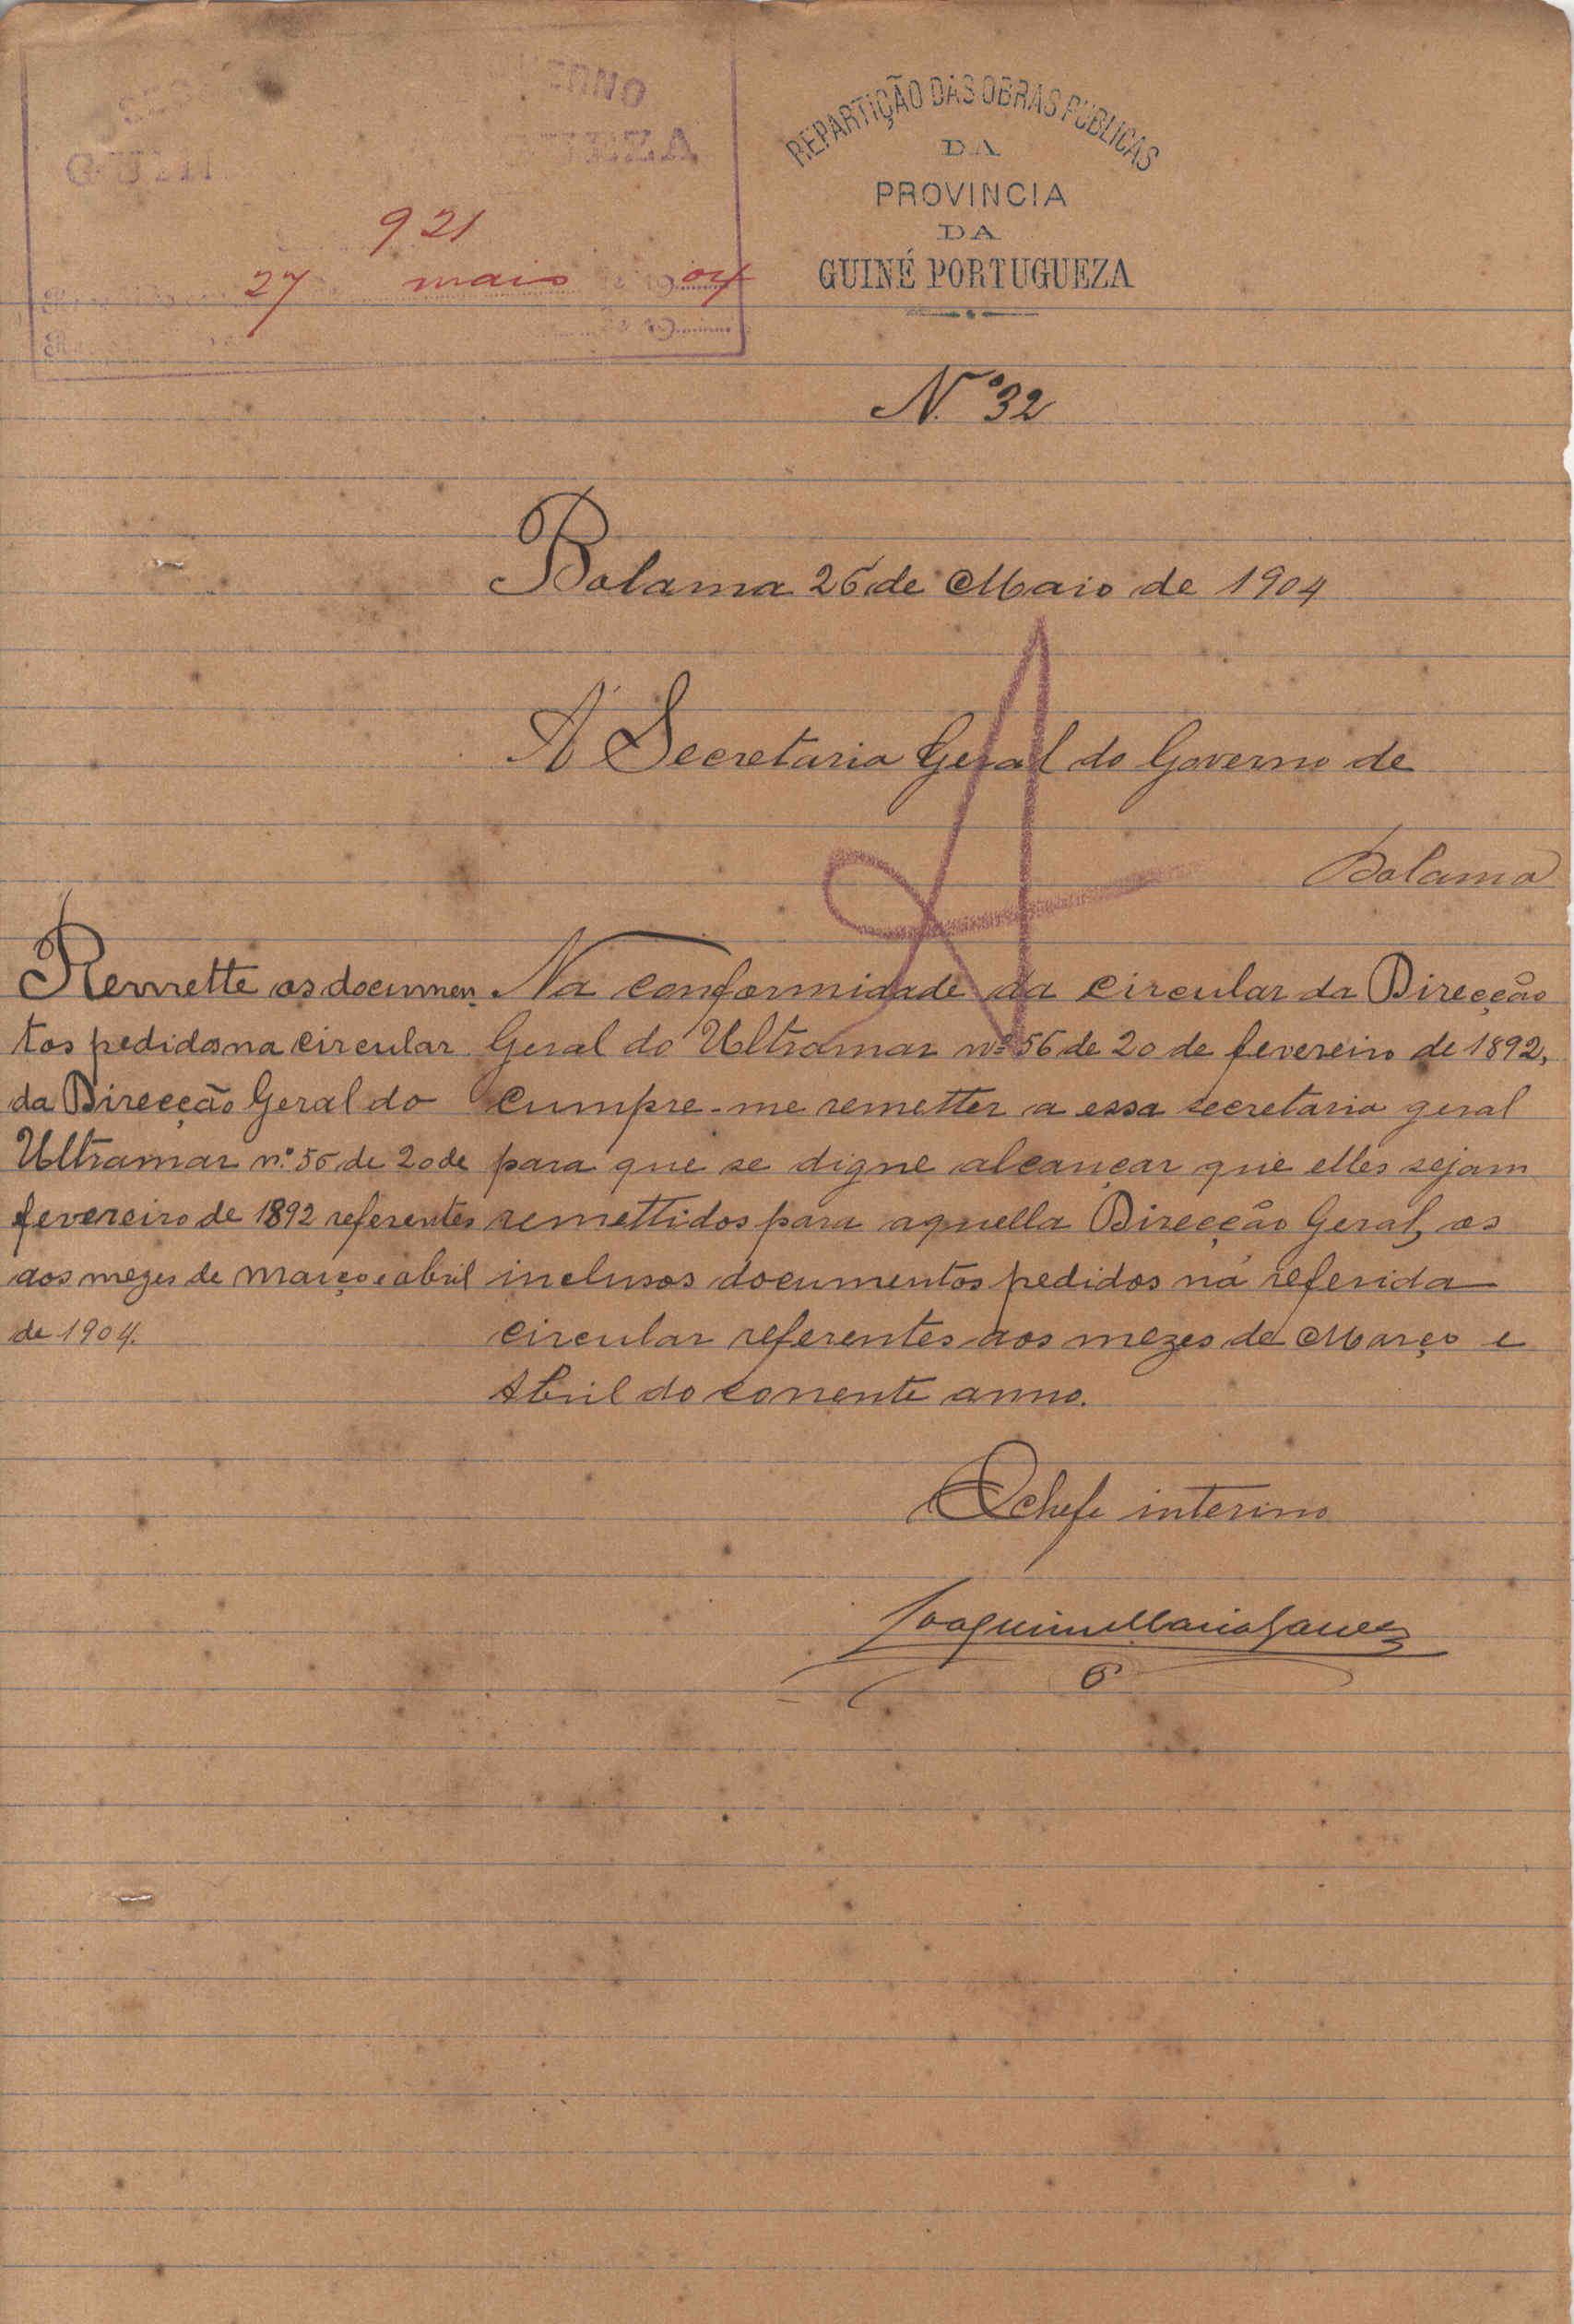 921
27 maio 04
REPARTIÇÃO DAS OBRAS PUBLICAS
DA
PROVINCIA
DA
GUINÉ PORTUGUEZA
N.º 32
Bolama 26 de Maio de 1904
Á Secretaria Geral do Governo de
Bolama
Remette os documen
tos pedidos na circular
da Direcção Geral do
Ultramar n.º 56 de 20 de
fevereiro de 1892 referentes
aos mezes de março e abril
de 1904.
Na conformidade da circular da Direcção
Geral do Ultramar nº 56 de 20 de fevereiro de 1892,
cumpre-me remetter a essa secretaria geral
para que se digne alcançar que elles sejam
remettidos para aquella Direcção Geral, os
inclusos documentos pedidos na referida
circular referentes aos mezes de Março e
Abril do corrente anno.
O chefe interino
Joaquim Maria